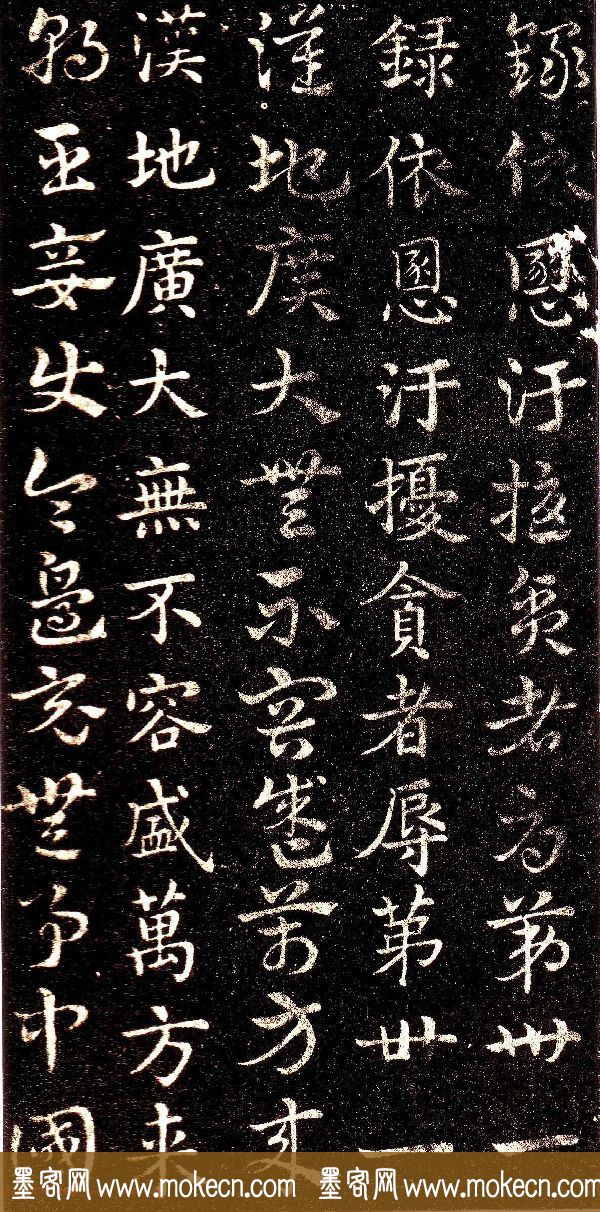 錄依慁汙擾貪者辱第卅一
録依慁汙擾貪者辱第卅一
漢地廣大無不容盛萬方來
漢地廣大無不容盛萬方來
朝臣妾使令邊竟無事中國
墨客网 www.mokecn.com 墨客网 www.mokecn.com